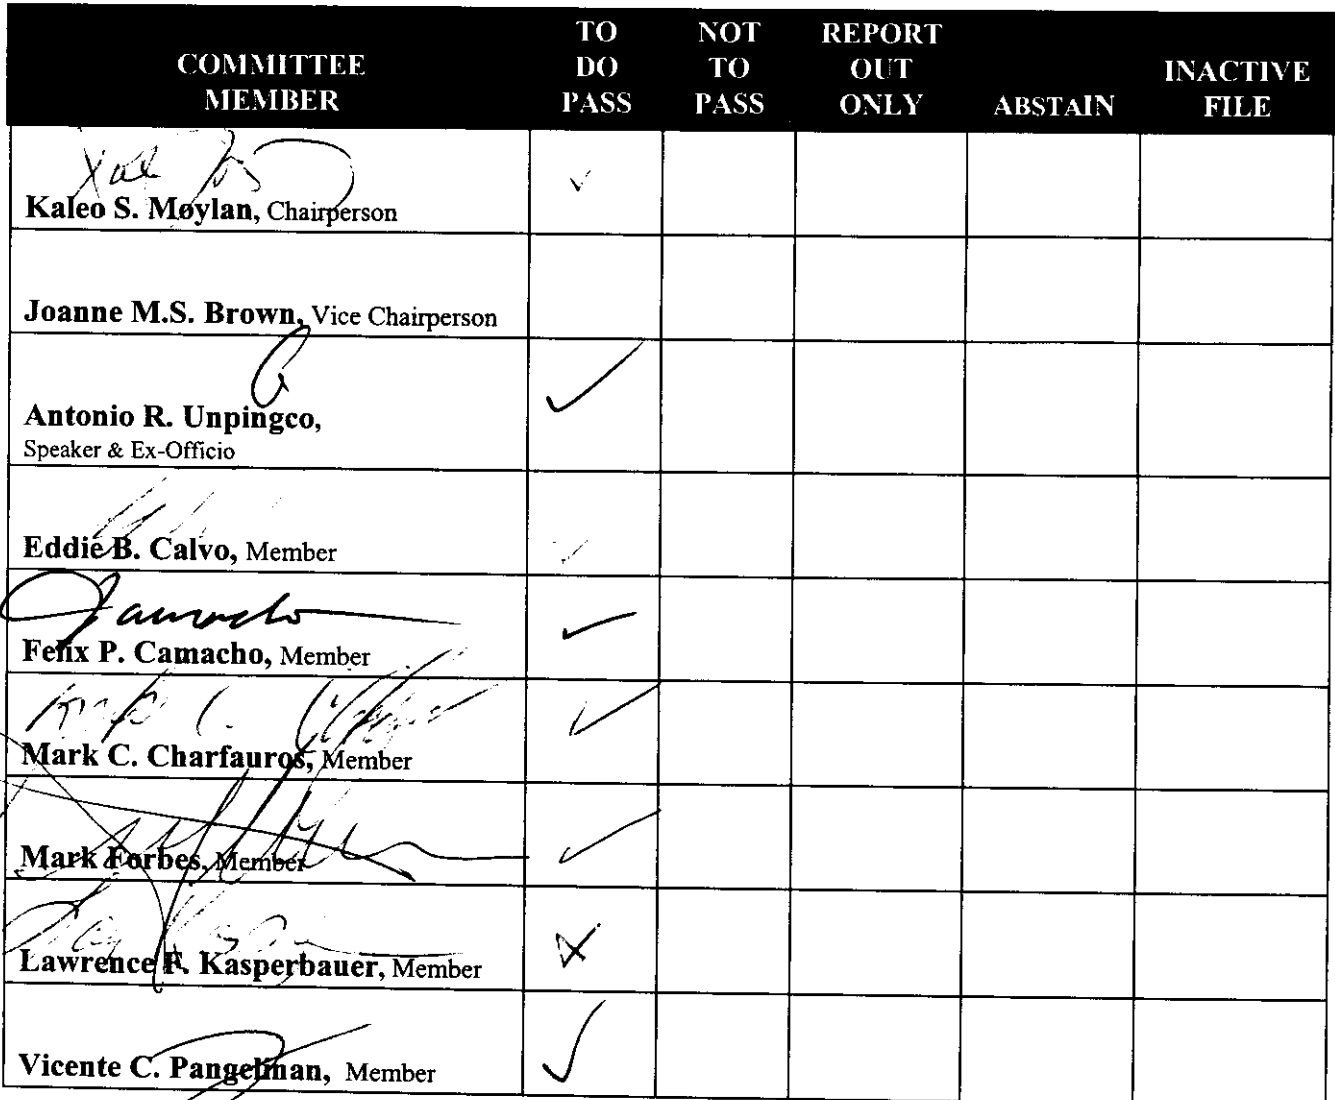 COMMITTEE MEMBER TO DO PASS NOT TO PASS REPORT OUT ONLY ABSTAIN INACTIVE FILE
Kaleo S. Moylan, Chairperson ✓
Joanne M.S. Brown, Vice Chairperson
Antonio R. Unpingco, ✓
Speaker & Ex-Officio
Eddie B. Calvo, Member ✓
Camacho
Felix P. Camacho, Member ✓
Mark C. Charfauros, Member ✓
Mark Forbes, Member ✓
Lawrence F. Kasperbauer, Member X
Vicente C. Pangelinan, Member ✓